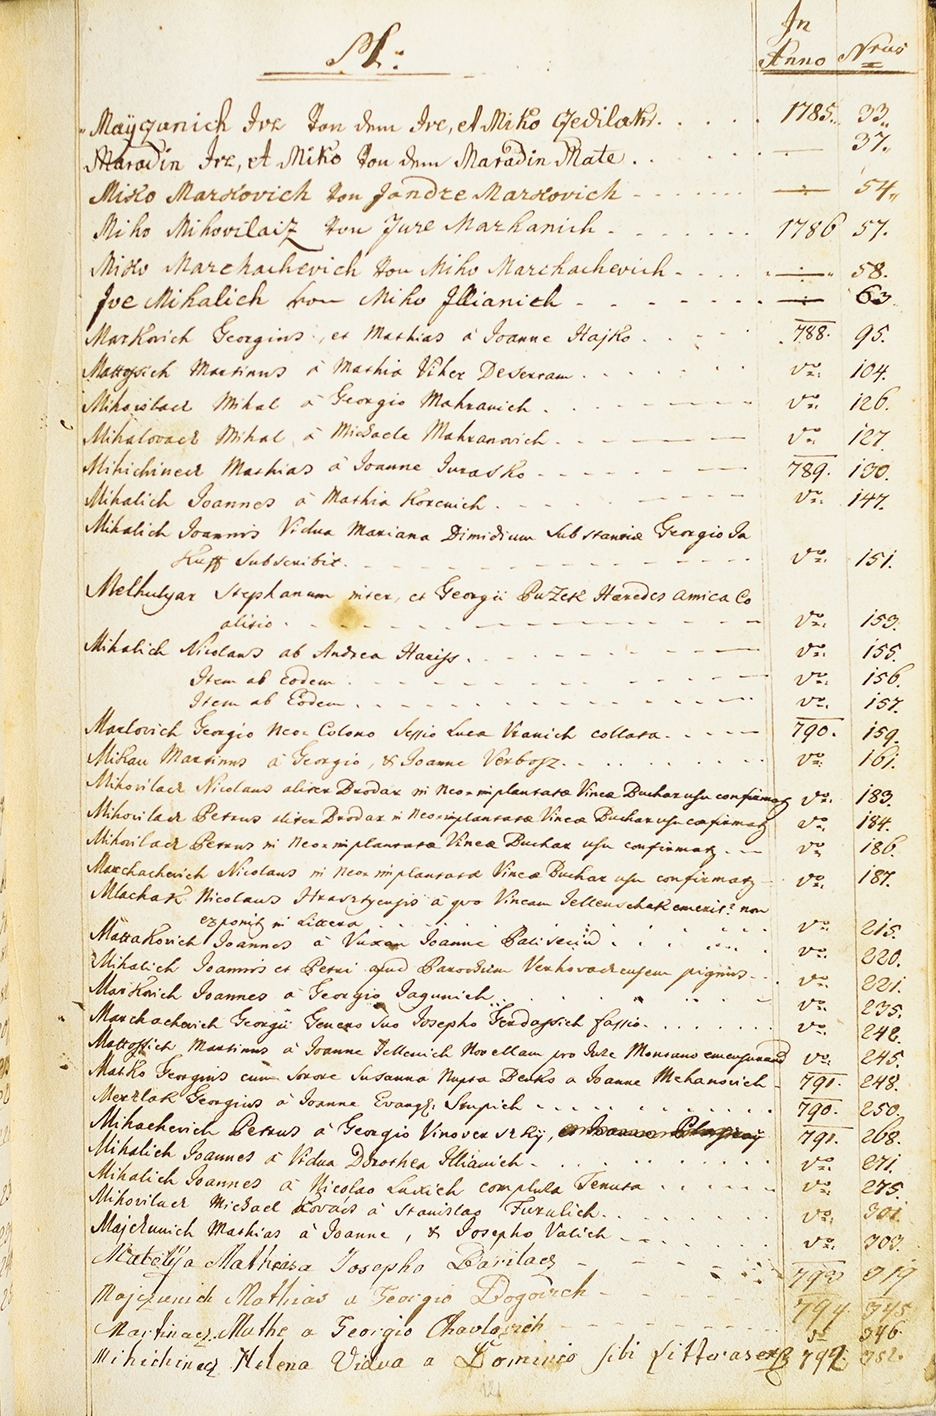 M:
In
Anno Nrus
Mayczunich Ive Von dem Ive, et Miko . . . . . 1785. 33.
Maradin Ive, et Miko Von dem Maradin Mate . . . — 37.
Misko Markovich Von Jandre Markovich - - - — 54.
Miko Mihovilaiz Von Jure Markanich - - - 1786 57.
Misko Marchachevich Von Miko Marchachevich - - - — 58.
Ive Mihalich von Miko Illianich - - - — 63
Markovich Georgius, et Mathias à Joanne Hajko . . . 788. 95.
Martinus à Mathia Viher Desertam . . . do. 104.
Mihovilacz Mihal à Georgio Mahranich . . . do. 126.
Mihalovacz Mihal à Michaele Mahranovich . . . do. 127
Mihichinecz Mathias à Joanne Jurasko - - - 789. 130.
Mihalich Joannes à Mathia Korenich . . . do. 147.
Mihalich Joannis Vidua Mariana Dimidium Substantiae Georgio Ja
Kuff Subscribit. - - - do. 151.
Stephanum inter, et Georgii Puzek Haeredes amica Co
alitio . - - - do. 153.
Mihalich Nicolaus ab Andrea . - - - do. 155.
Item ab Eodem . - - - do. 156.
Item ab Eodem . - - - do. 157.
Markovich Georgio Neo-Colono Sessio Luca Vranich collata . - - - 790. 159.
Mikau Martinus à Georgio, & Joanne Verbosz . . . do. 161.
Mihovilacz Nicolaus aliter Drodar in Neo-implantata Vinea Buchar usu confirmatg do. 183.
Mihovilacz Petrus aliter Drodar in Neo-implantata Vinea Buchar usu confirmatg do. 184.
Mihovilacz Petrus in Neo-implantata Vinea Buchar usu confirmatg . - do 186.
Marchachevich Nicolaus in Neo-implantata Vinea Buchar usu confirmatg - do. 187.
Mlachak Nicolaus à quo Vineam non
exponitg in Littera . . . do. 215.
Mattakovich Joannes à Joanne . . . do. 220.
Mihalich Joannis et Petri apud Parochum Verhovacensem pignus . . do. 221.
Markovich Joannes à Georgio Jagunich . . . do. 235.
Marchachevich Georgii Genero Suo Josepho fassio . . . do. 242.
Martinus à Joanne Jellenich Novellam pro Jure Montano do. 245.
Matko Georgius cum Sorore Susanna Nupta Denko a Joanne Mehanovich - 791. 248.
Merzlak Georgius à Joanne Evangg. Stupich . . . 790. 250.
Mihachevich Petrus à Georgio Vinoverszky, 791. 268.
Mihalich Joannes à Vidua Dorothea Illianich . . . do. 271.
Mihalich Joannes à Nicolao Luxich completa Tenuta . . . do. 275.
Mihovilacz Michael Kovács à Stanislao Furulich . . . do. 301.
Majczunich Mathias à Joanne, & Josepho Valich . . . do. 303.
Matekja Mathia a Josepho Barilacz - - - 793 319
Majczunich Mathias a Georgio Dogovich - - - 794. 345
Martinacz Mathe a Georgio Chavlovich - - - 346
Mihichinecz Helena Vidua a Dominio sibi 799. 352.